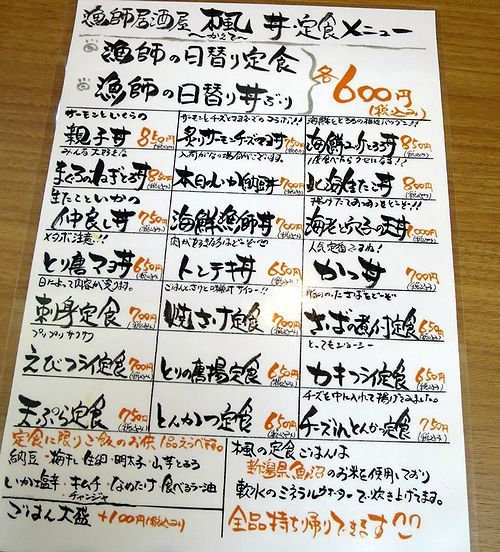 漁師居酒屋 楓 丼・定食メニュー
〜かえで〜
漁師の日替り定食
漁師の日替り丼ぶり
各600円(税込み)
サーモンといくらの
親子丼 850円(税込み)
炙りサーモンチーズマヨ丼 750円(税込み)
海鮮ユッケとろろ丼 850円(税込み)
みんな大好きな
まぐろのねぎとろ丼 850円(税込み)
本日のいか納豆丼 700円(税込み)
北海生たこ丼 800円(税込み)
生たこといかの
仲良し丼 750円(税込み)
海鮮漁師丼 700円(税込み)
海老と穴子の天丼 1000円(税込み)
メタボ注意!!
とり唐マヨ丼 650円(税込み)
トンテキ丼 650円(税込み)
人気定番ですよね!
かつ丼 700円(税込み)
日によって内容が変ります。
刺身定食 700円(税込み)
焼さけ定食 700円(税込み)
さば煮付定食 650円(税込み)
プリップリ サクサク
えびフライ定食 700円(税込み)
とりの唐揚定食 650円(税込み)
とってもジューシー
カキフライ定食 650円(税込み)
天ぷら定食 750円(税込み)
とんかつ定食 650円(税込み)
チーズを中に入れて揚げてみました。
チーズinとんかつ定食 750円(税込み)
定食に限りご飯のお供1品えらべます。
納豆・梅干し・佃煮・明太子・山芋とろろ
いか塩辛・キムチ・なめたけ・食べるラー油
チャンジャ
ごはん大盛 +100円(税込み)
楓の定食ごはんは
新潟県魚沼のお米を使用しており
軟水のミネラルウォーターで炊き上げてます。
全品持ち帰りできます!!